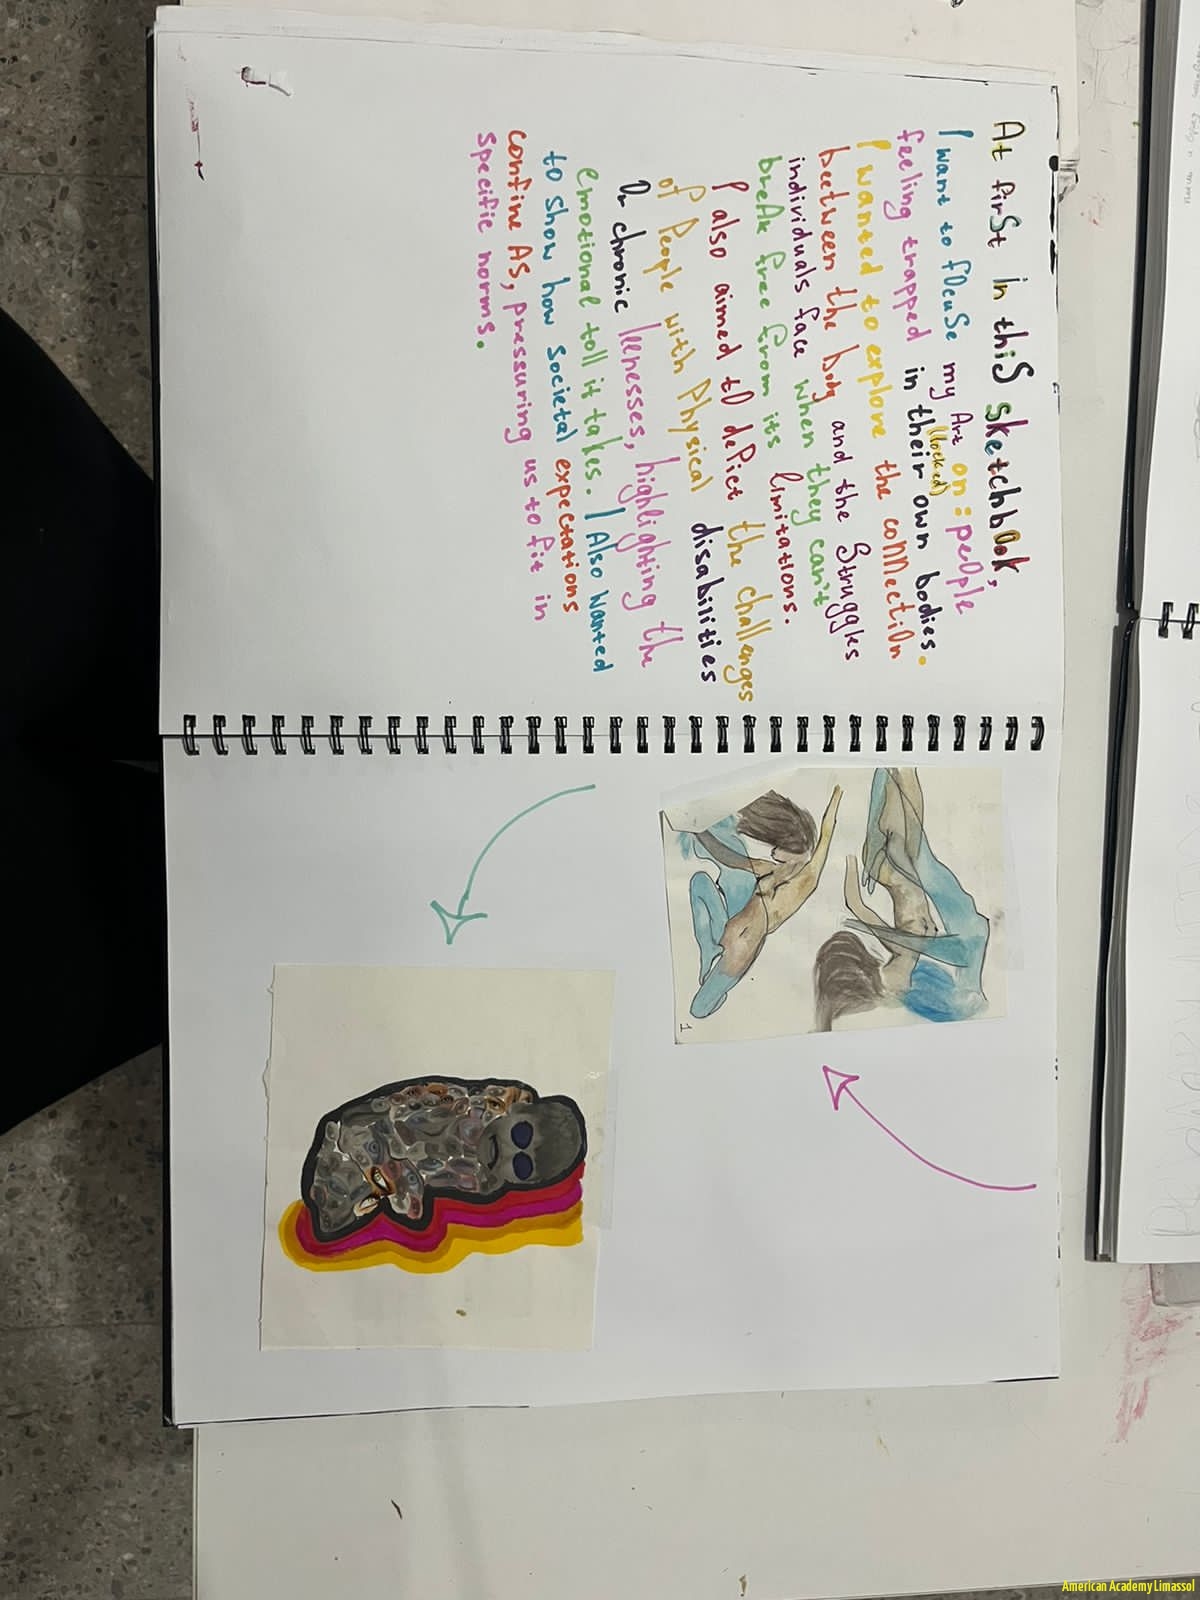 At first in this sketchbook,
I want to focuse my Art on: people
feeling trapped in their own bodies.
(locked)
I wanted to explore the connection
beetween the body and the struggles
individuals face when they can't
break free from its limitations.
I also aimed to depict the challenges
of people with physical disabilities
Or chronic leenesses, highlighting the
emotional toll it takes. I Also wanted
to show how societal expectations
confine As, pressuring us to fit in
specific norms.
1
American Academy Limassol